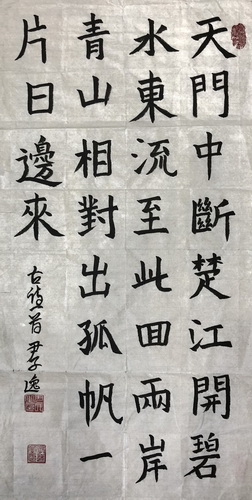 天門中斷楚江開碧
水東流至此回兩岸
青山相對出孤帆一
片日邊來
古詩一首 尹子逸